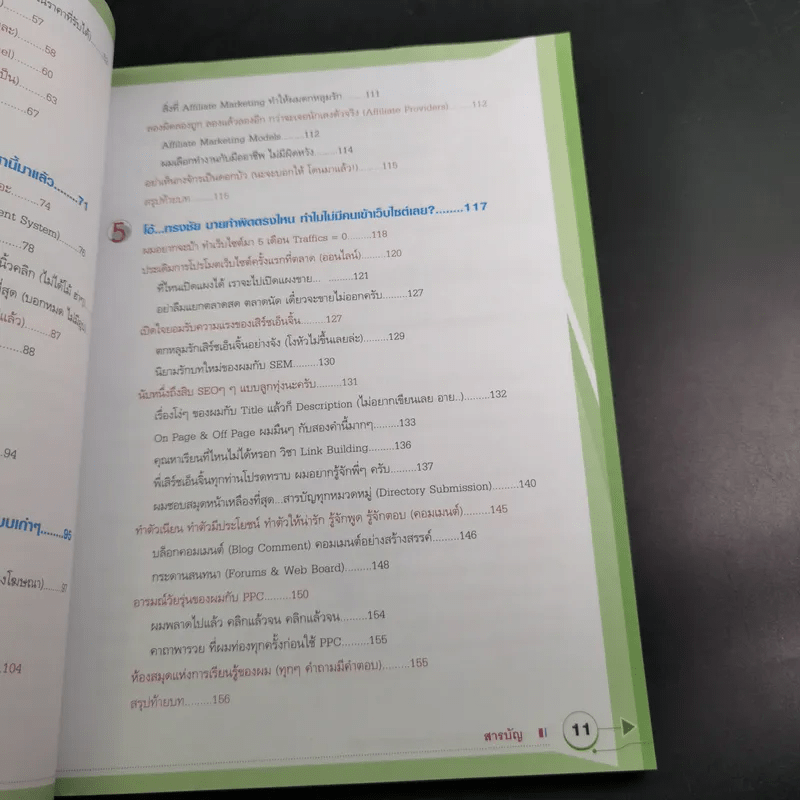 นราคาที่รับได้)
57
ละ)........58
el)........60
เป็น)........63
67
านี้มาแล้ว........71
อะ........74
ent System)........76
78
นิ้วคลิก (ไม่ได้โม้
ที่สุด (บอกหมด
แล้ว)........87
88
94
แบบเก่าๆ........95
องโฆษณา)........97
104
สิ่งที่ Affiliate Marketing ทำให้ผมตกหลุมรัก........111
ลองผิดลองถูก ลองแล้วลองอีก กว่าจะเจอนักเลงตัวจริง (Affiliate Providers)........112
Affiliate Marketing Models........112
ผมเลือกทำงานกับมืออาชีพ ไม่มีผิดหวัง........114
อย่าเห็นกงจักรเป็นดอกบัว (นะจะบอกให้ โดนมาแล้ว!)........115
สรุปท้ายบท........116
5 โอ้...ทรงชัย นายทำผิดตรงไหน ทำไมไม่มีคนเข้าเว็บไซต์เลย?........117
ผมอยากจะบ้า ทำเว็บไซต์มา 5 เดือน Traffics = 0........118
ประเดิมการโปรโมตเว็บไซต์ครั้งแรกที่ตลาด (ออนไลน์)........120
ที่ไหนเปิดแผงได้ เราจะไปเปิดแผงขาย... ........121
อย่าลืมแยกตลาดสด ตลาดนัด เดี๋ยวจะขายไม่ออกครับ........127
เปิดใจยอมรับความแรงของเสิร์ชเอ็นจิ้น........127
ตกหลุมรักเสิร์ชเอ็นจิ้นอย่างจัง (โงหัวไม่ขึ้นเลยล่ะ)........129
นิยามรักบทใหม่ของผมกับ SEM........130
นับหนึ่งถึงสิบ SEOๆ ๆ แบบลูกทุ่งนะครับ........131
เรื่องโง่ๆ ของผมกับ Title แล้วก็ Description (ไม่อยากเขียนเลย อาย..)........132
On Page & Off Page ผมมึนๆ กับสองคำนี้มากๆ........133
คุณหาเรียนที่ไหนไม่ได้หรอก วิชา Link Building........136
พี่เสิร์ชเอ็นจิ้นทุกท่านโปรดทราบ ผมอยากรู้จักพี่ๆ ครับ........137
ผมชอบสมุดหน้าเหลืองที่สุด...สารบัญทุกหมวดหมู่ (Directory Submission)........140
ทำตัวเนียน ทำตัวมีประโยชน์ ทำตัวให้น่ารัก รู้จักพูด รู้จักตอบ (คอมเมนต์)........145
บล็อกคอมเมนต์ (Blog Comment) คอมเมนต์อย่างสร้างสรรค์........146
กระดานสนทนา (Forums & Web Board)........148
อารมณ์วัยรุ่นของผมกับ PPC........150
ผมพลาดไปแล้ว คลิกแล้วจน คลิกแล้วจน........154
คาถาพารวย ที่ผมท่องทุกครั้งก่อนใช้ PPC........155
ห้องสมุดแห่งการเรียนรู้ของผม (ทุกๆ คำถามมีคำตอบ)........155
สรุปท้ายบท........156
สารบัญ 11